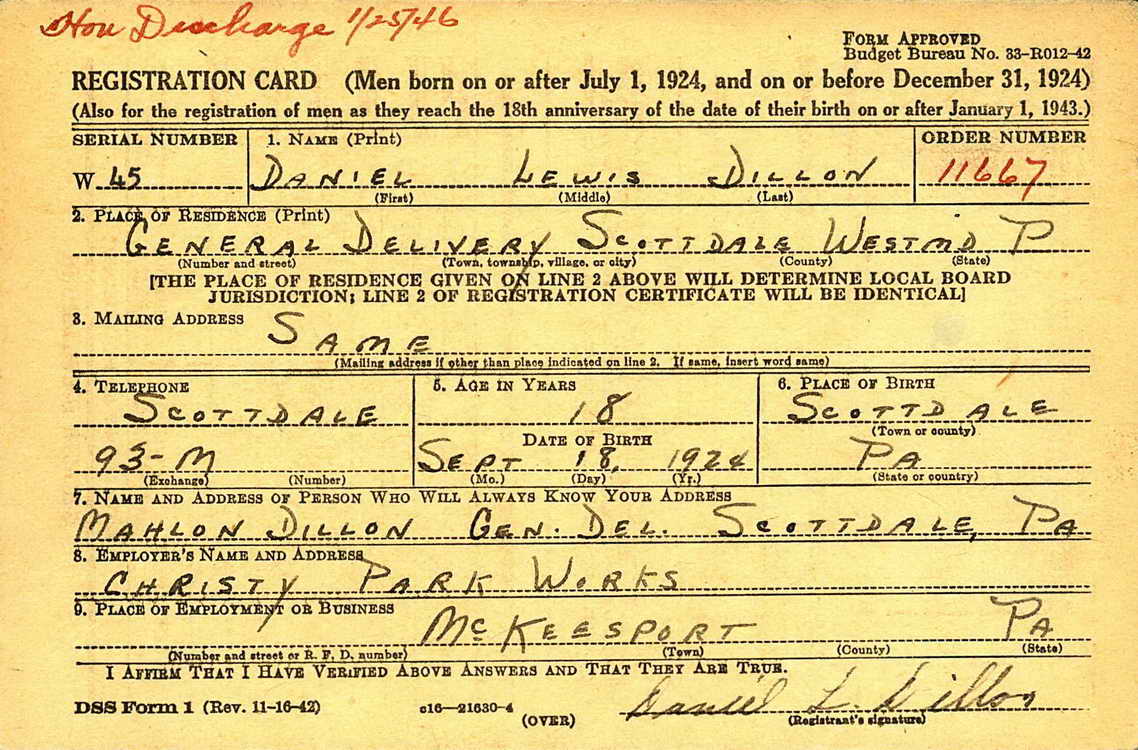 Hon Discharge 1/25/46
FORM APPROVED
Budget Bureau No. 33-R012-42
REGISTRATION CARD (Men born on or after July 1, 1924, and on or before December 31, 1924)
(Also for the registration of men as they reach the 18th anniversary of the date of their birth on or after January 1, 1943.)
SERIAL NUMBER 1. NAME (Print) ORDER NUMBER
W 45 DANIEL LEWIS DILLON 11667
(First) (Middle) (Last)
2. PLACE OF RESIDENCE (Print)
GENERAL DELIVERY SCOTTDALE WESTMD P
(Number and street) (Town, township, village, or city) (County) (State)
[THE PLACE OF RESIDENCE GIVEN ON LINE 2 ABOVE WILL DETERMINE LOCAL BOARD
JURISDICTION; LINE 2 OF REGISTRATION CERTIFICATE WILL BE IDENTICAL]
3. MAILING ADDRESS
SAME
(Mailing address if other than place indicated on line 2. If same, insert word same)
4. TELEPHONE 5. AGE IN YEARS 6. PLACE OF BIRTH
SCOTTDALE 18 SCOTTDALE
(Town or county)
DATE OF BIRTH
93-M SEPT 18, 1924 PA
(Exchange) (Number) (Mo.) (Day) (Yr.) (State or country)
7. NAME AND ADDRESS OF PERSON WHO WILL ALWAYS KNOW YOUR ADDRESS
MAHLON DILLON GEN. DEL. SCOTTDALE, PA
8. EMPLOYER'S NAME AND ADDRESS
CHRISTY PARK WORKS
9. PLACE OF EMPLOYMENT OR BUSINESS
McKEESPORT PA
(Number and street or R. F. D. number) (Town) (County) (State)
I AFFIRM THAT I HAVE VERIFIED ABOVE ANSWERS AND THAT THEY ARE TRUE.
DSS Form 1 (Rev. 11-16-42) c16—21630-4 Daniel L. Dillon
(OVER) (Registrant's signature)